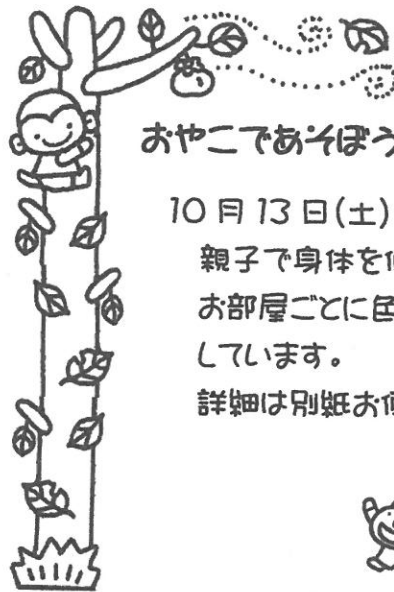 おやこであそぼう
10月13日(土)
親子で身体を
お部屋ごとに色
しています。
詳細は別紙お便